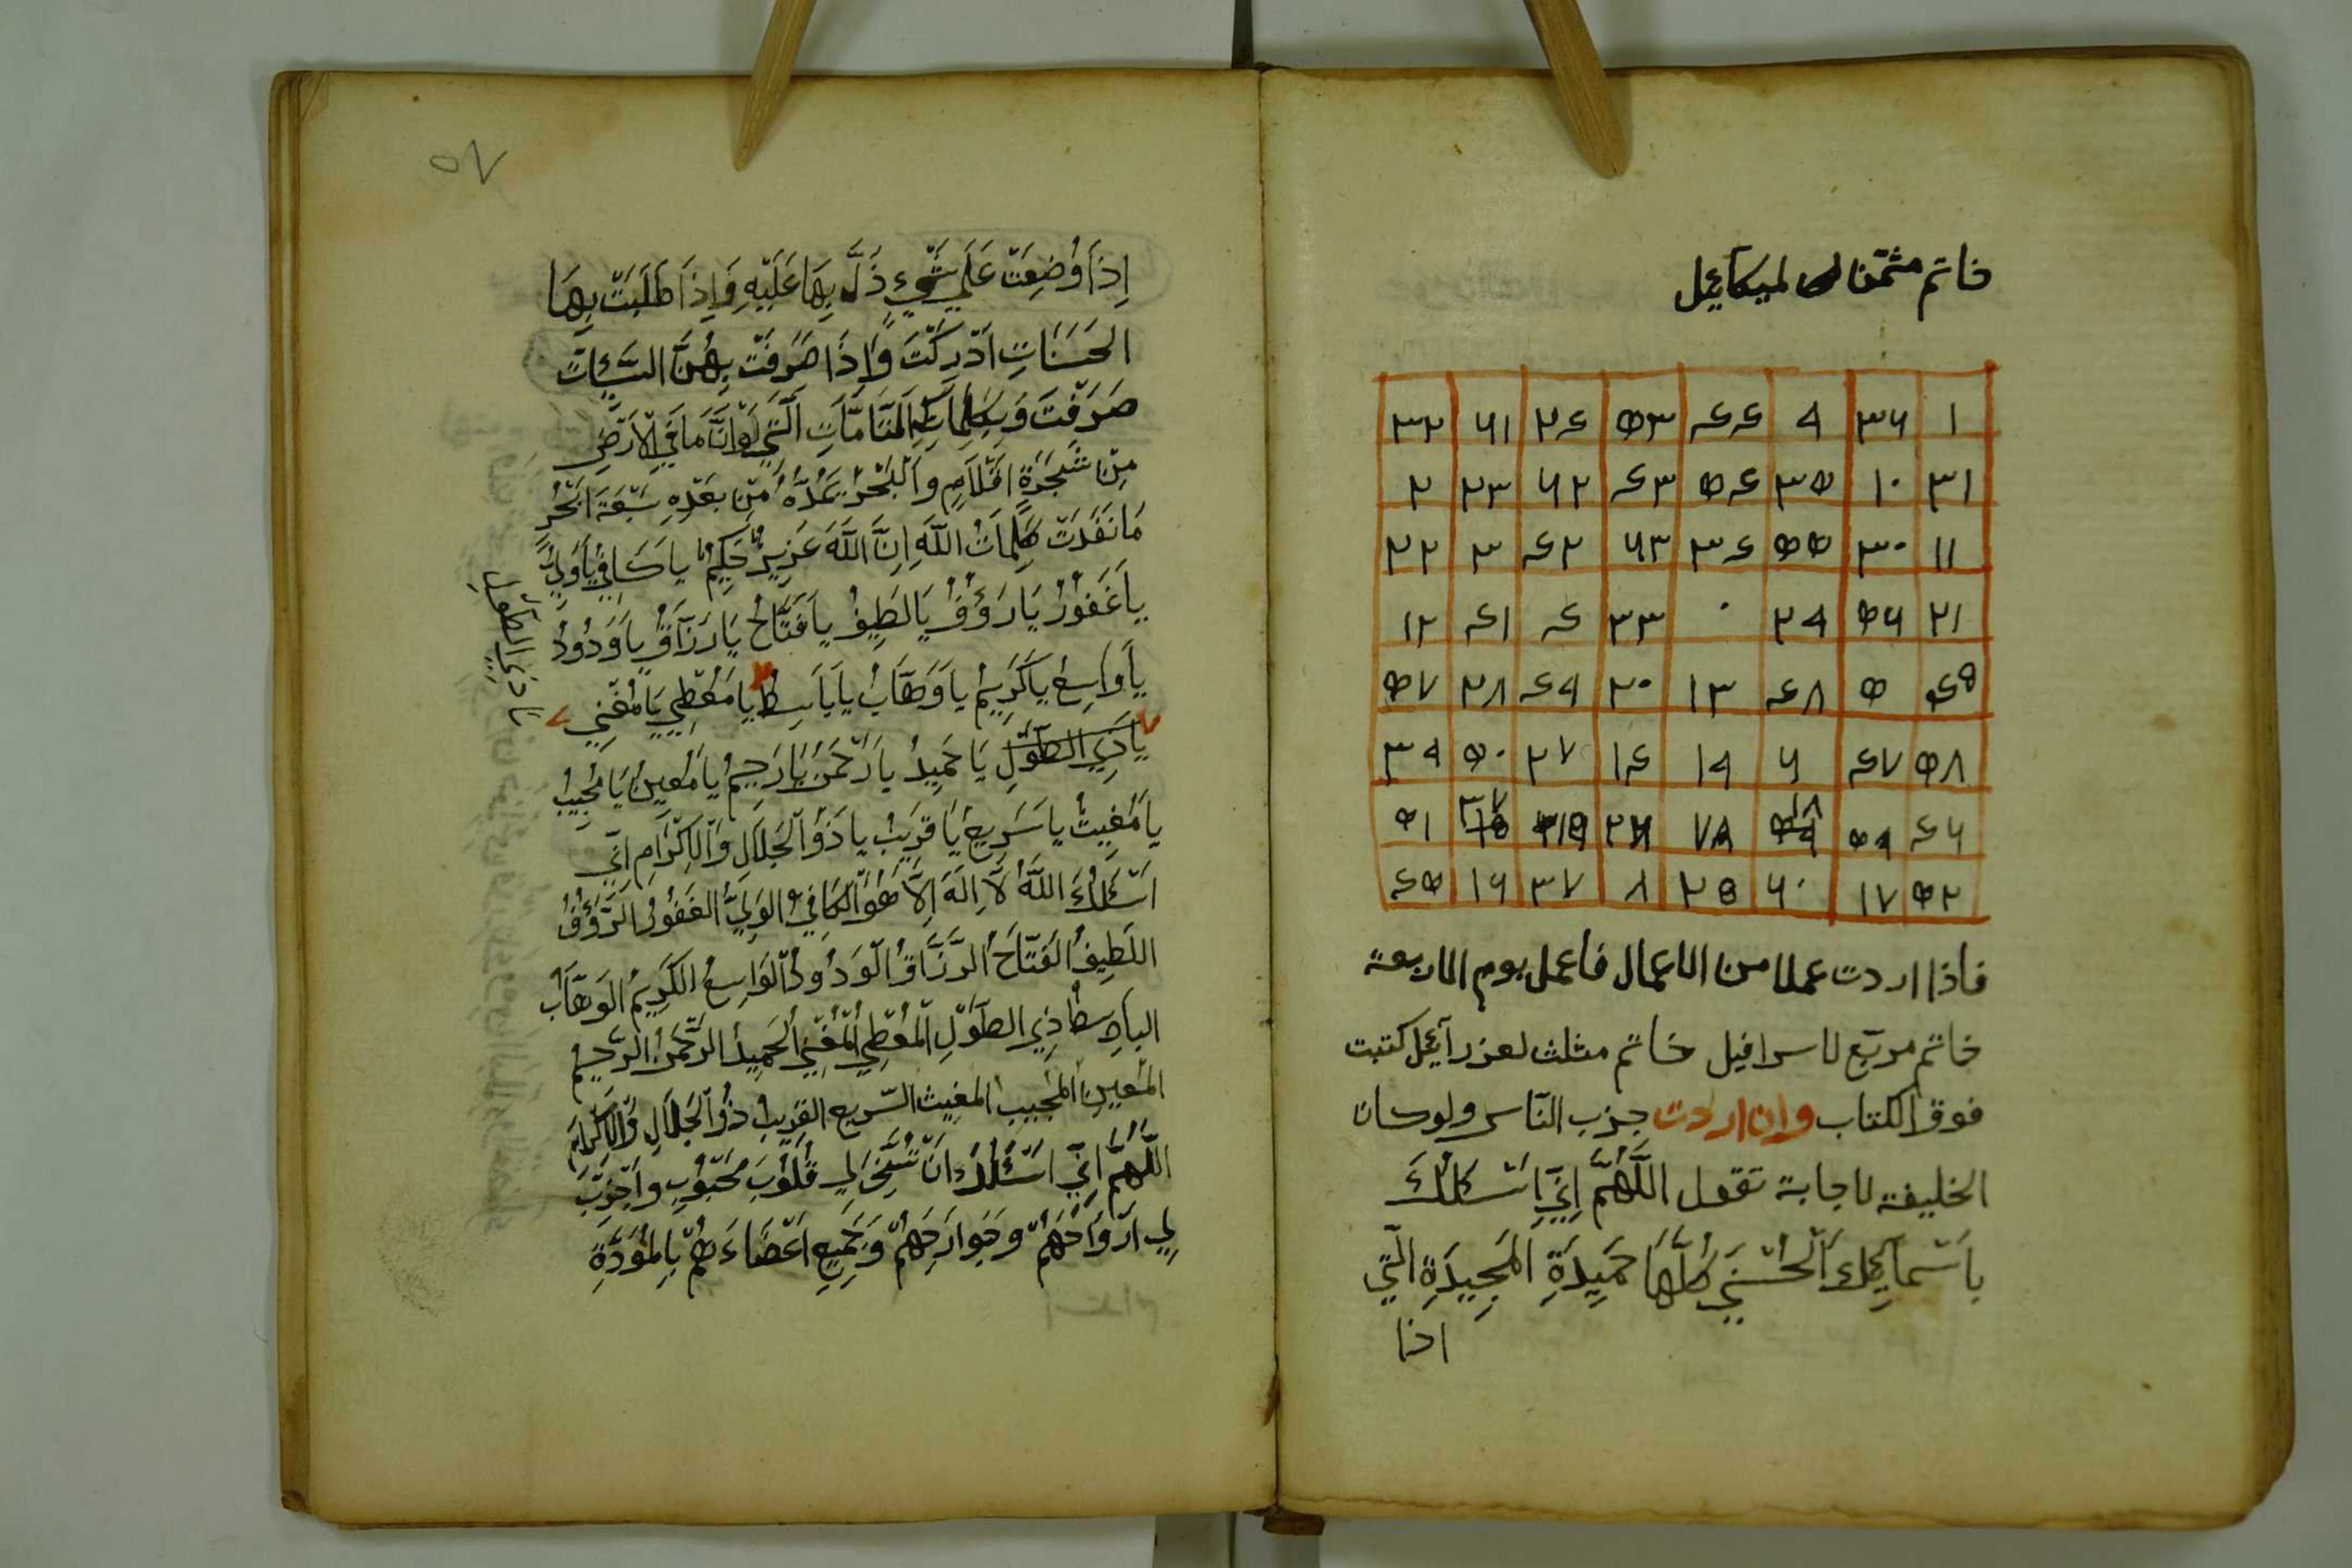 خاتم مثمن لميكآئيل
٣٢ ٦١ ٢٤ ٥٣ ٤٤ ٩ ٣٦ ١
٢ ٢٣ ٦٢ ٤٣ ٥٤ ٣٥ ١٠ ٣١
٢٢ ٣ ٤٢ ٦٣ ٣٤ ٥٥ ٣٠ ١١
١٢ ٤١ ٤ ٣٣ ٠ ٢٩ ٥٦ ٢١
٥٧ ٢٨ ٤٩ ٢٠ ١٣ ٤٨ ٥ ٤٥
٣٩ ٥٠ ٢٧ ١٤ ١٩ ٦ ٤٧ ٥٨
٥١ ٥٩ ٤٦
٤٥ ١٦ ٣٧ ٨ ٢٥ ٦٠ ١٧ ٥٢
فاذا اردت عملا من الاعمال فاعمل يوم الاربعة
خاتم مربّع لاسرافيل خاتم مثلث لعزرآئيل كتبت
فوق الكتاب وان اردت جزب النّاس ولو كان
الخليفة لاجابة تقول اَللَّهُمَّ اِنِّي اَسْئَلُكَ
بِاَسْمآئِكَ اَلْحُسْنَي كُلِّهَا حَمِيدَةِ المَجِيدَةِ الَّتِي
اذا
٥٧
اِذَا وُضِعَتْ عَلَي شَيْءٍ ذَلَّ بِهَا عَلَيْهِ وَاِذَا طَلَبَتْ بِهَا
الحَسَنَاتِ اَدْرِكَتْ وَاِذَا صَرَفَتْ بِهُنَّ السَّيِّئاتِ
صَرَفَتْ وَبِكَلِمَاتِكَ التَّامَّاتِ اَلَّتِي لَوْ اَنَّ مَا فِي الْاَرْضِ
مِنْ شَجَرَةٍ اَقْلَامٍ وَاَلْبَحْرُ يَمُدُّهُ مِنْ بَعْدِهِ سَبْعَةَ اَبْحُرٍ
مَا نَفَدَتْ كَلِمَاتُ اللَّهِ اِنَّ اللَّهَ عَزِيزٌ حَكِيمٌ يا كَافِي يَا وَلِيُّ
يا غَفُورُ يَا رَؤُفُ يَا لَطِيفُ يا فَتَّاحُ يَا رَزَّاقُ يا وَدُودُ
يا وَاسِعُ يا كَرِيمُ يا وَهَّابُ يا بَاسِطُ يا مُعْطِي يَا مُغْنِي
يا ذِي الطَّوْلِ يَا حَمِيدُ يا رَحْمَنُ يَا رَحِيمُ يا مُعِينُ يَا مُجِيبُ
يا مُغِيثُ يا سَرِيعُ يَا قَرِيبُ يا ذُو الْجَلَالِ وَالاِكْرَامِ اِنِّي
اَسْئَلُكَ اللَّهُ لَا اِلَهَ اِلَّا هُوَ الكَافِي الوَلِيُّ الغَفُورُ الرَّؤُفُ
اللَطِيفُ الفَتَّاحُ الرَّزَّاقُ الْوَدُودُ الْوَاسِعُ الكَرِيمُ الوَهَّابُ
البَاسِطُ ذِي الطَّوْلِ الْمُعْطِي الْمُغْنِي الحَمِيدُ الرَّحْمَنُ الرَّحِيمُ
المُعِينُ المُجِيبُ المغِيث السّرِيع القَرِيبُ ذُو الْجَلَالِ وَالاِكْرَامِ
اللَّهُمَّ اِنِّي اَسْئَلُكَ اَنْ تُسَخِّرَ لِي قُلُوبَ مَحْبُوبِ وَاجْزِبْ
لِي اَرْوَاحَهُمْ وَجَوَارِحَهُمْ وَجَمِيعِ اَعْضَاءَهُمْ بِالمَوَدَّةِ